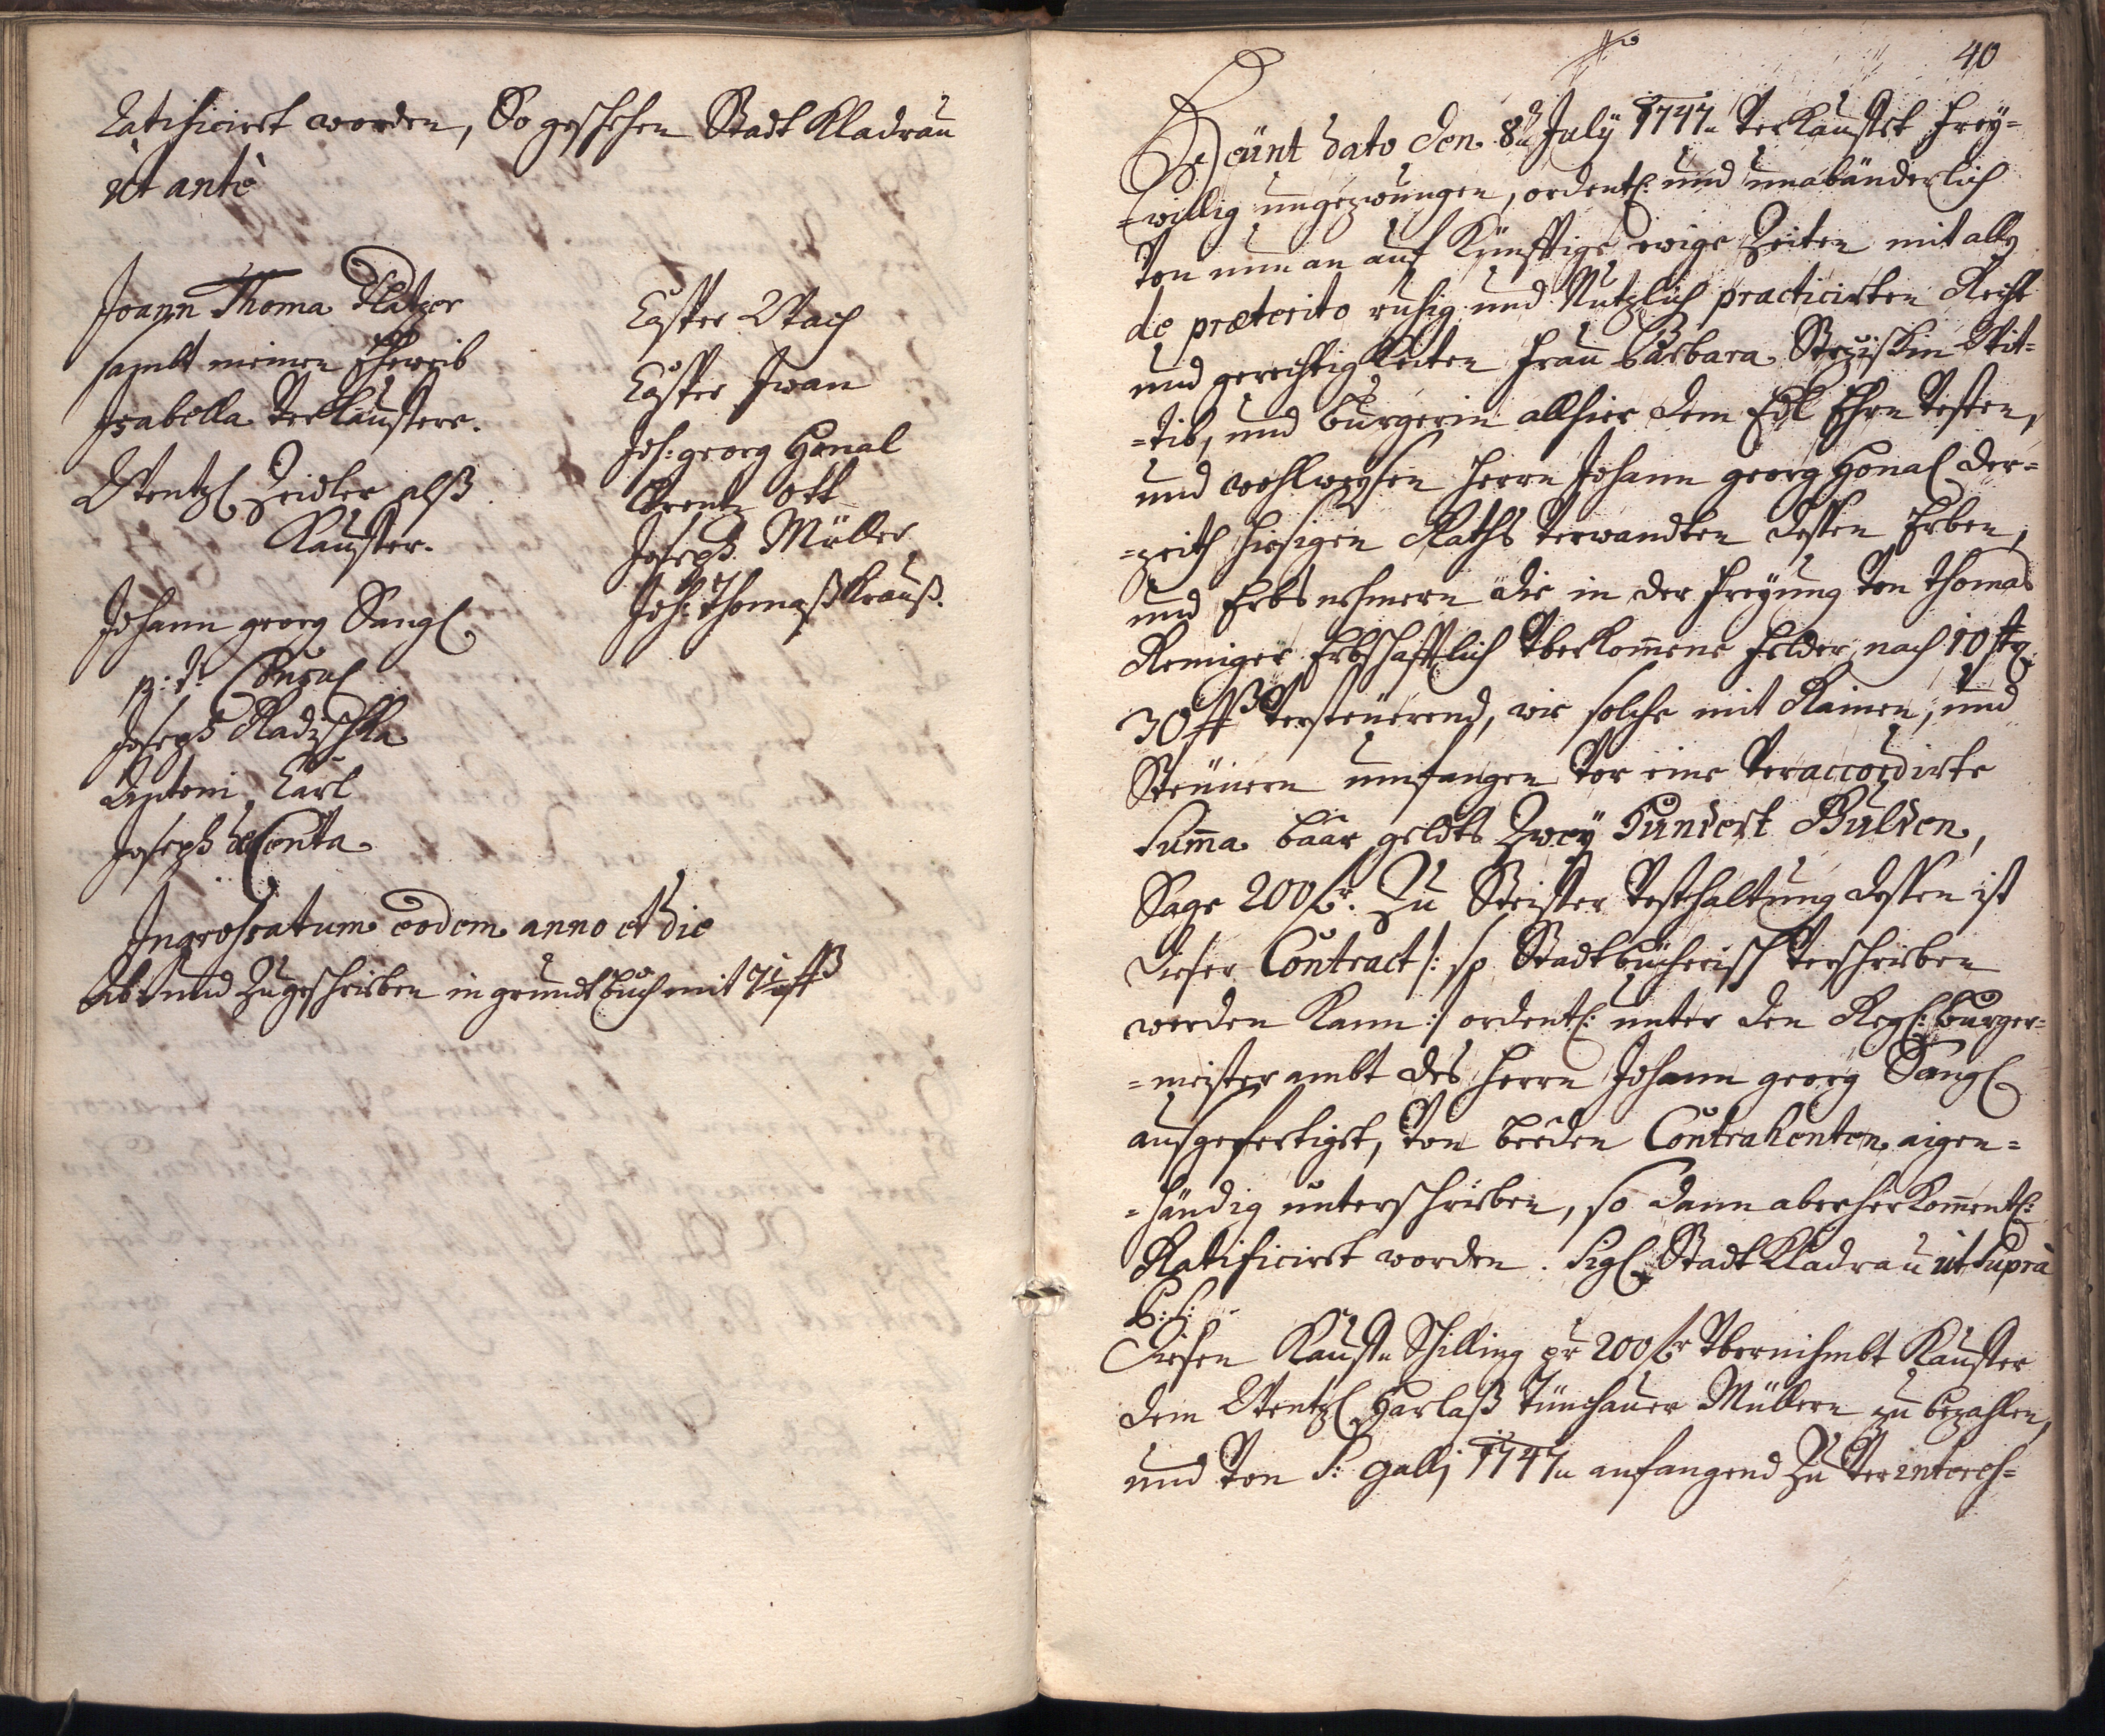 ratificiret worden, So geschehen Stadt Kladrau
ut ante
Joann Thoma Platzer
sambt meinen Eheweib
Isabella Verkauffere.
Wentzl Zeidler alß
Kauffer.
Johann georg Sangl
p: t: Consul
Joseph Radischka
Antoni Carl
Joseph de Conta
Casper Wach
Casper Iwan
Joh: georg Honal
Lorentz Ott
Joseph Müller
Joh: Thomaß Krauß.
Ingrossatum eodem anno et die
Ab und Zugeschrieben in grundt buch mit
40
Heünt dato den 8ten July 1747 Verkauffet Frey=
=willig ungezwungen, ordentl: und unabänderlich
Von nun an auf Künfftige ewige Zeiten mit all
de præterito ruhig und Nutzlich practicirten Recht
und gerechtigkeiten Frau Barbara Wit=
=tib, und burgerin allhier dem Edl Ehrn Vesten,
und wohlweysen Herrn Johann georg Honal der=
=zeith hiesigen Raths Verwandten dessen Erben,
und Erbsnehmern die in der Freyung Von Thomas
Remiger Erbschafftlich Überkom̄ene Felder nach 10 str.
30 Versteuerend, wie solche mit Rainen, und
Steünern umfangen Vor eine Veraccordirte
Sum̄a baar geldts Zwey Hundert Gulden,
Sage 200 fl. Zu Steiffer Vesthaltung dessen ist
dieser Contract /: so Stadtbücherisch Verschrieben
werden kann :/ ordentl: unter den Regl: burger=
=meister ambt des Herrn Johann georg Sangl
ausgefertiget, Von beeden Contrahenten aigen=
=händig unterschrieben, so dann aber herkom̄entl:
Ratificiret worden. Sigl. Stadt Kladrau ut supra
L: S:
Diesen Kauff Schilling pr 200 fl Übernihmbt Kauffer
dem Wentzl Harlaß Tünchauer Müllern zu bezahlen,
und Von S: Galli 1747 anfangend Zu Verinteres=